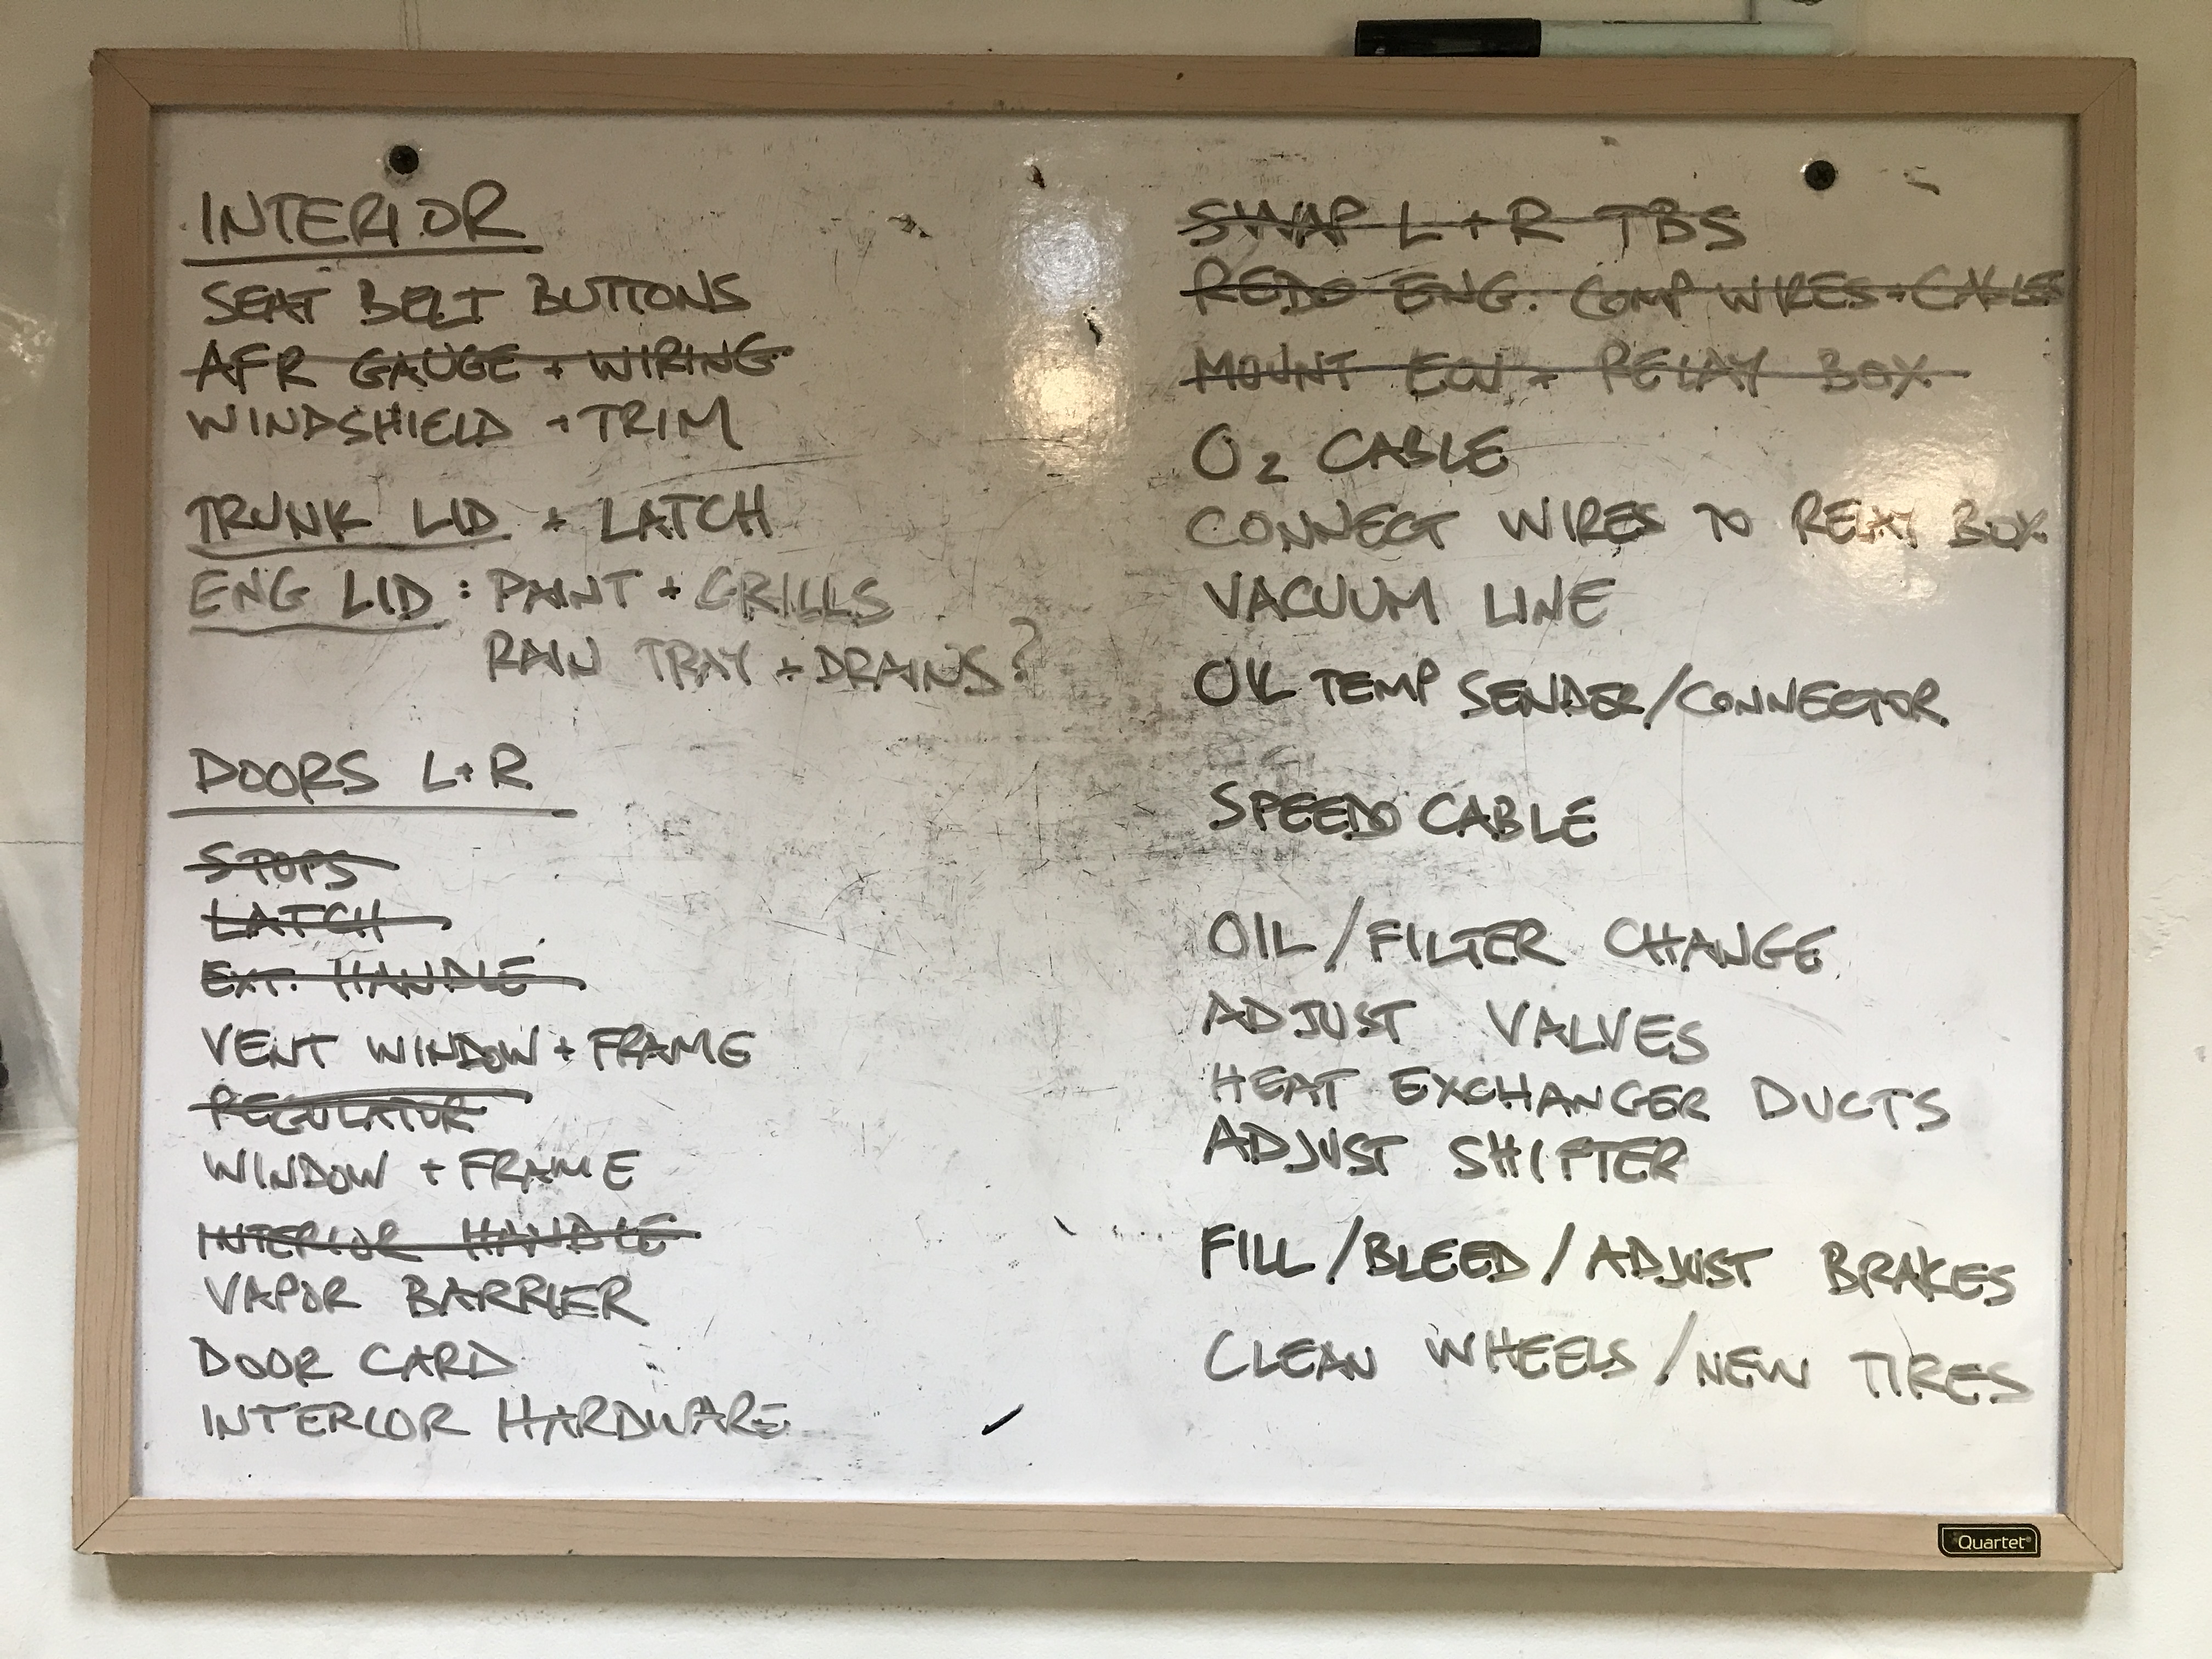 INTERIOR
SEAT BELT BUTTONS
AFR GAUGE + WIRING
WINDSHIELD + TRIM
TRUNK LID + LATCH
ENG LID : PAINT + GRILLS
RAIN TRAY + DRAINS?
DOORS L+R
STOPS
LATCH
EXT. HANDLE
VENT WINDOW + FRAME
REGULATOR
WINDOW + FRAME
INTERIOR HANDLE
VAPOR BARRIER
DOOR CARD
INTERIOR HARDWARE
SWAP L + R TBS
REDO ENG. COMP WIRES + CABLES
MOUNT ECU + RELAY BOX
O2 CABLE
CONNECT WIRES TO RELAY BOX
VACUUM LINE
OIL TEMP SENDER/CONNECTOR
SPEEDO CABLE
OIL/FILTER CHANGE
ADJUST VALVES
HEAT EXCHANGER DUCTS
ADJUST SHIFTER
FILL/BLEED/ADJUST BRAKES
CLEAN WHEELS/NEW TIRES
Quartet